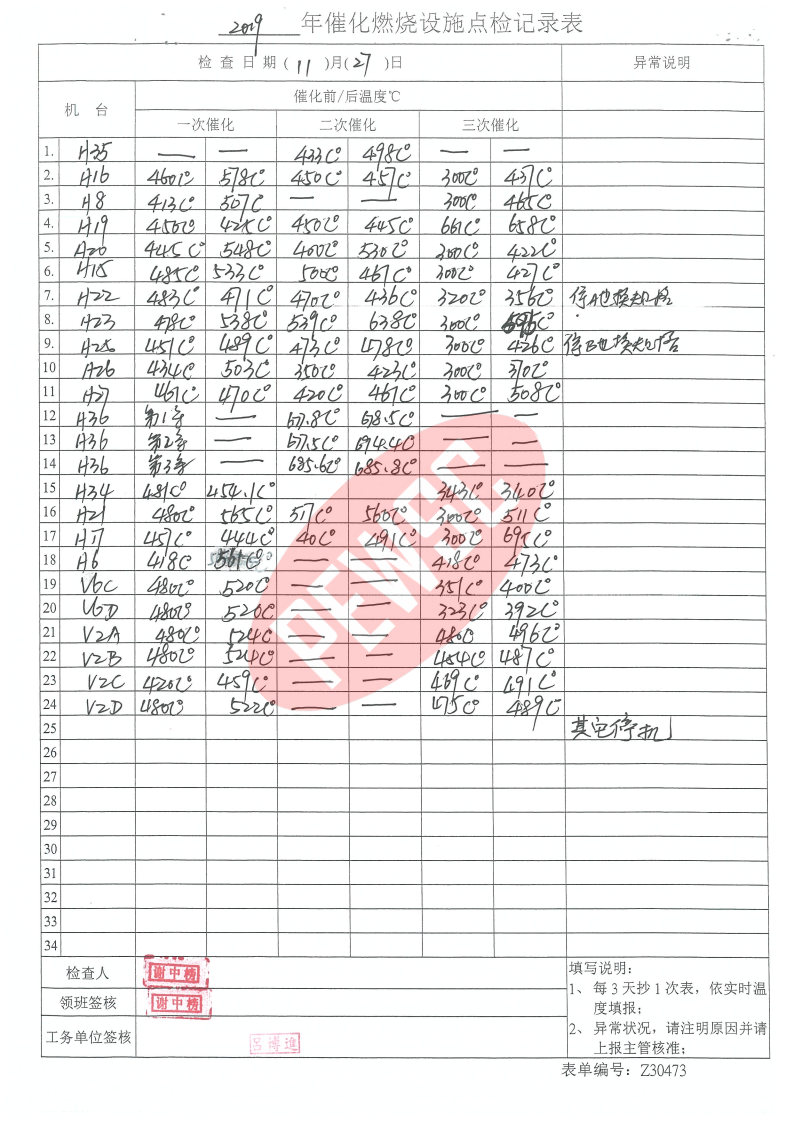 2019 年催化燃烧设施点检记录表
检 查 日 期 ( 11 )月( 27 )日 异常说明
机 台 催化前/后温度℃
一次催化 二次催化 三次催化
1. H35 — — 433C° 498C° — —
2. H16 460C° 578C° 450C° 457C° 300C° 437C°
3. H8 413C° 507C° — — 300C° 465C°
4. H19 450C° 425C° 450C° 445C° 661C° 658C°
5. H20 445C° 548C° 400C° 530C° 300C° 422C°
6. H15 485C° 533C° 500C° 467C° 300C° 427C°
7. H22 483C° 471C° 470C° 436C° 320C° 356C° 停A包换规格
8. H23 478C° 538C° 539C° 638C° 300C°
9. H25 451C° 489C° 473C° 478C° 300C° 426C° 停B包换规格
10 H26 434C° 503C° 350C° 423C° 300C° 370C°
11 H27 461C° 470C° 420C° 461C° 300C° 508C°
12 H36 第1条 — 677.8C° 678.5C° — —
13 H36 第2条 — 677.5C° 694.4C° — —
14 H36 第3条 — 685.6C° 685.8C°
15 H34 481C° 454.1C° 343C° 340C°
16 H21 480C° 565C° 517C° 560C° 300C° 511C°
17 H17 457C° 444C° 40C° 491C° 300C° 695C°
18 H6 418C° 561C° — — 418C° 473C°
19 V6C 480C° 520C° — — 351C° 400C°
20 V6D 480C° 520C° — — 323C° 392C°
21 V2A 480C° 524C° — — 480C° 496C°
22 V2B 480C° 524C° — — 454C° 487C°
23 V2C 420C° 459C° — — 469C° 491C°
24 V2D 480C° 522C° — — 475C° 489C°
25 其它停机
26
27
28
29
30
31
32
33
34
PEWSC
检查人 谢中榜
领班签核 谢中榜
工务单位签核 吕博進
填写说明:
1、 每 3 天抄 1 次表，依实时温
度填报;
2、 异常状况，请注明原因并请
上报主管核准;
表单编号: Z30473